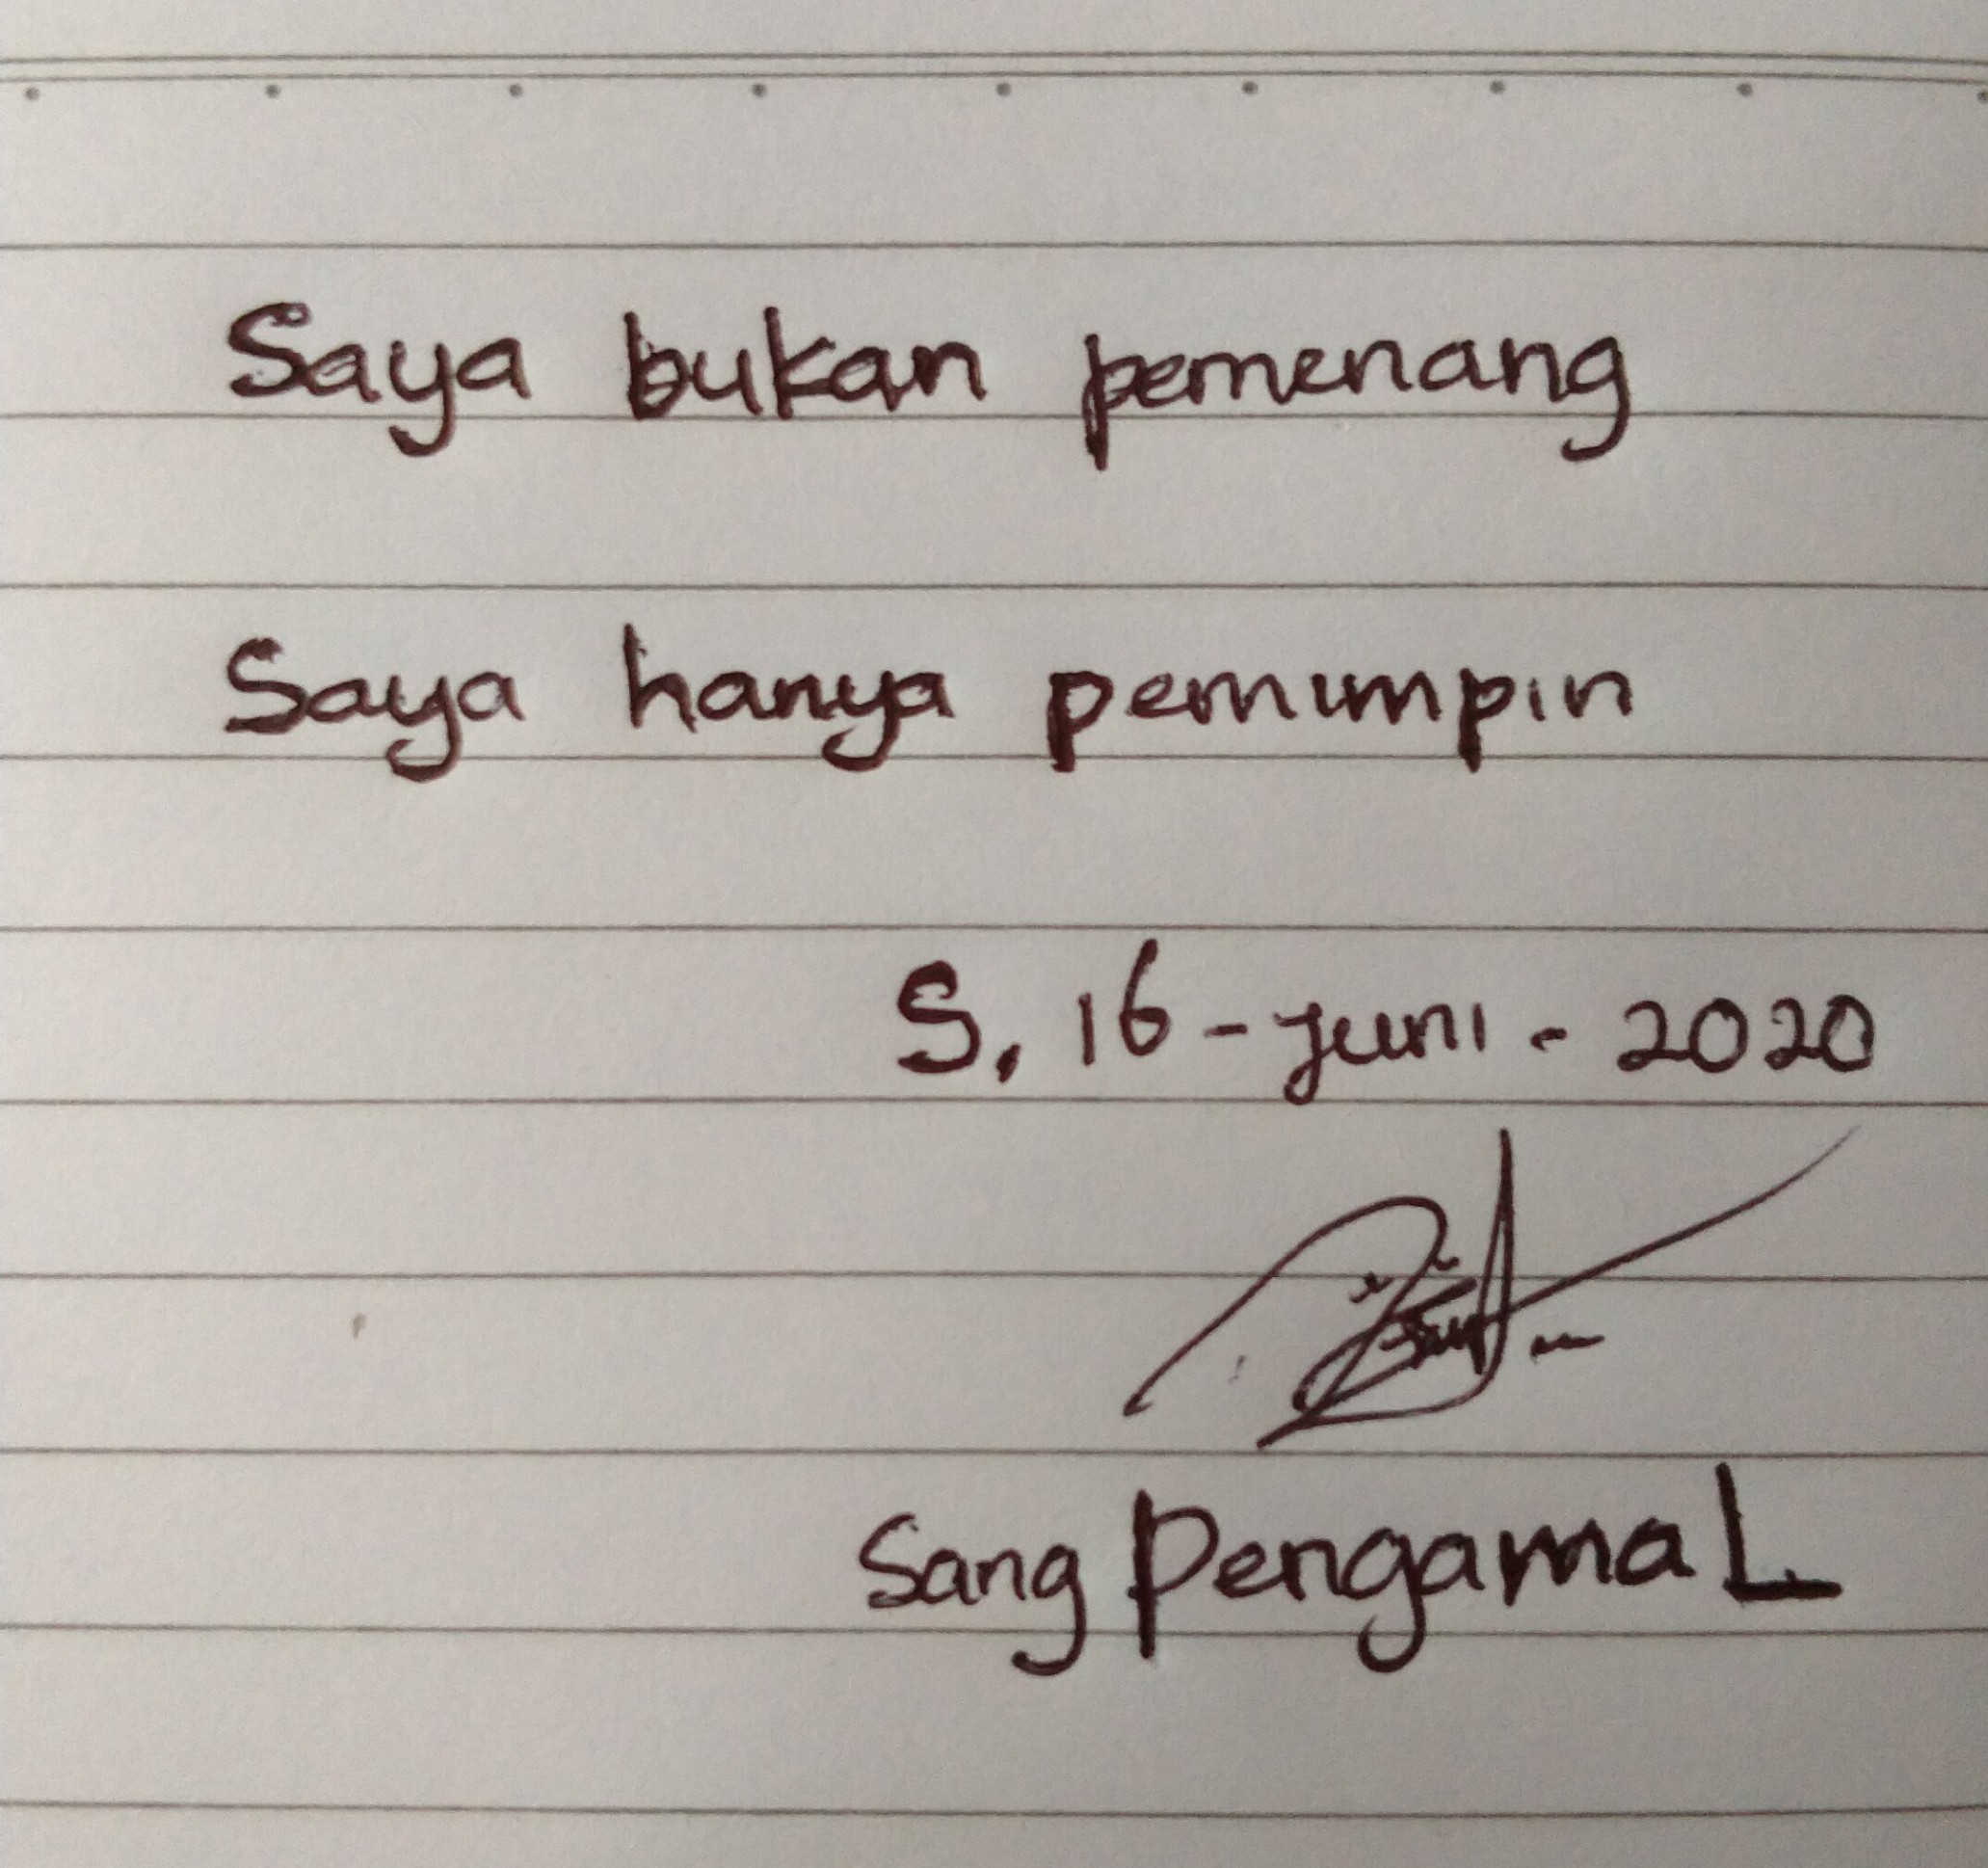 Saya bukan pemenang
Saya hanya pemimpin
S, 16 - juni - 2020
Sang PengamaL